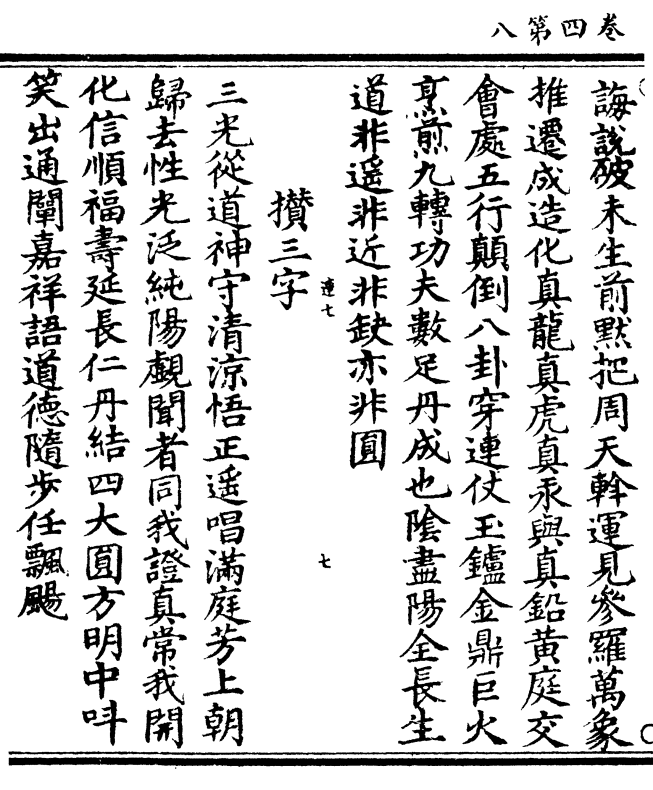 卷四第八
誨說破未生前默把周天斡運見參羅萬象
推遷成造化真龍真虎真汞與真鉛黃庭交
會處五行顛倒八卦穿連仗玉鑪金鼎巨火
烹煎九轉功夫數足丹成也陰盡陽全長生
道非遥非近非缺亦非圓
連七
七
攢三字
三光從道神守清涼悟正遥唱滿庭芳上朝
歸去性光泛純陽覷聞者同我證真常我開
化信順福壽延長仁丹結四大圓方明中呌
笑出通闡嘉祥語道德隨步任飄颺